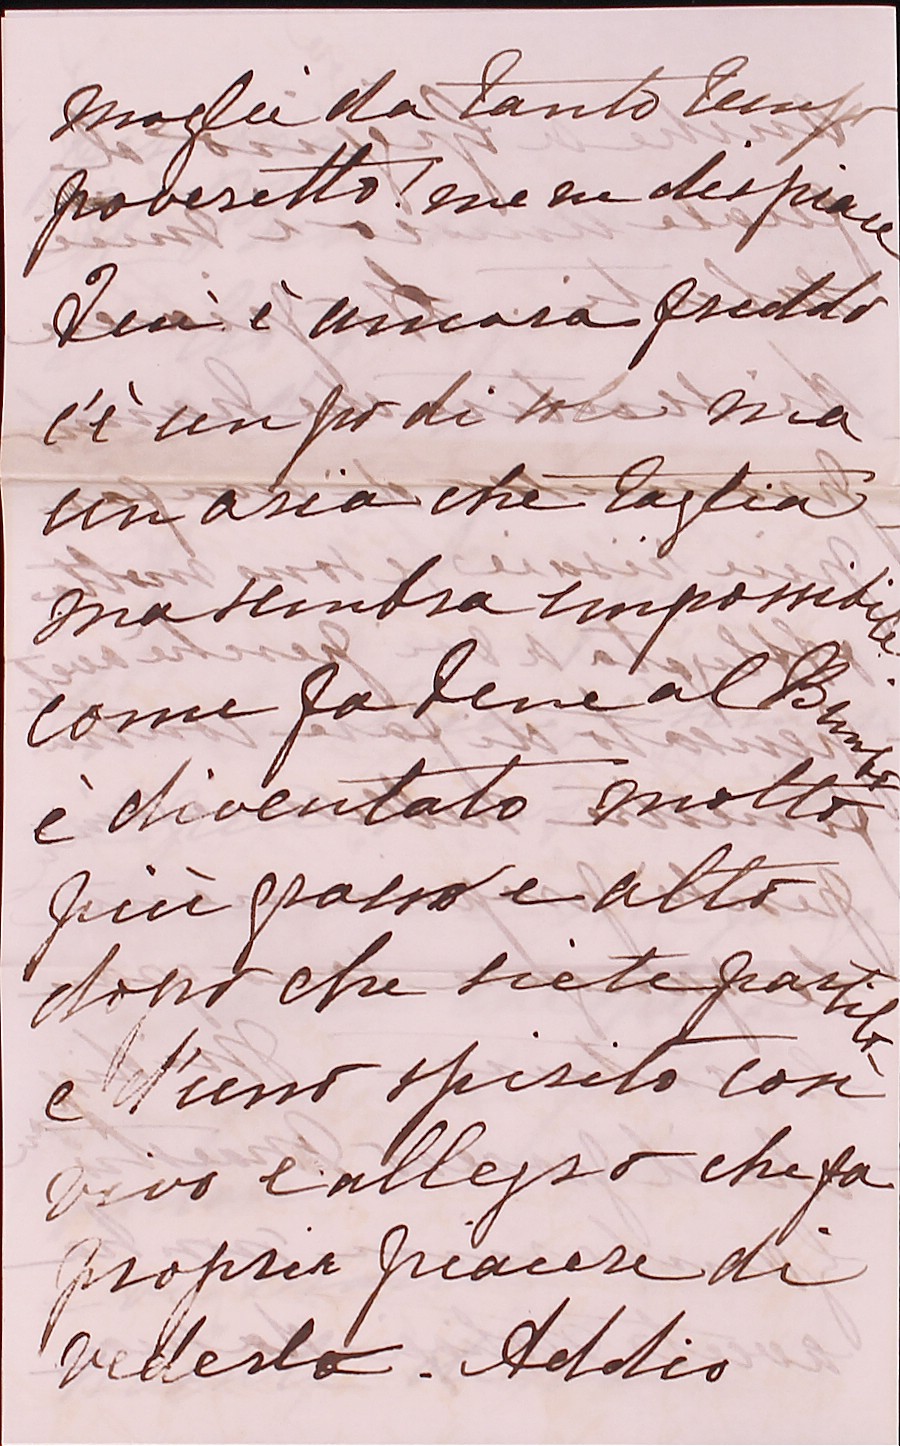 moglie da tanto tempo
poveretto! me ne dispiace
è ancora freddo
c'è un po di sole ma
un aria che taglia
ma sembra impossibile
come fa bene al Bimbo
è diventato molto
più grasso e alto
dopo che siete partito
e d'uno spirito così
vivo e allegro che fa
proprio piacere di
vederlo. Addio